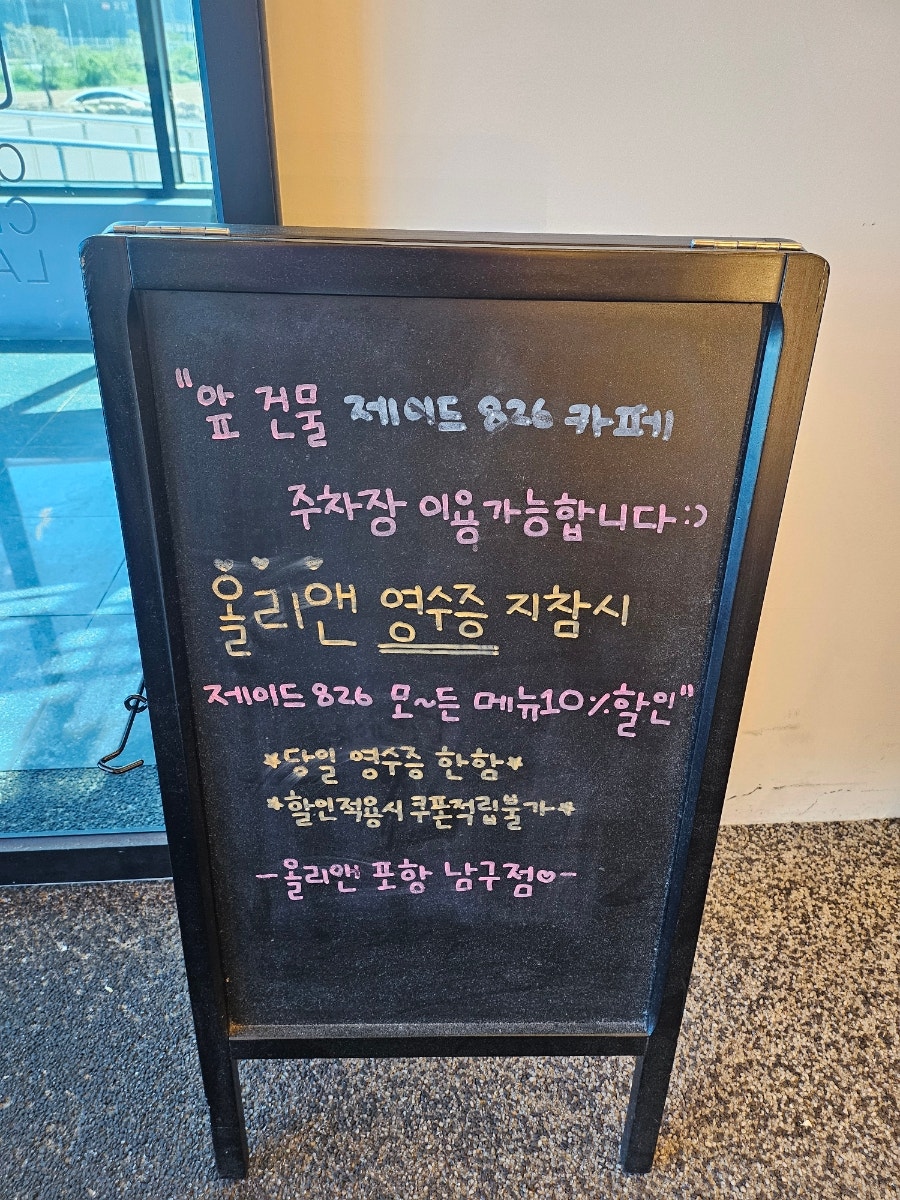 "앞 건물 제이드 826 카페
주차장 이용가능합니다:)
올리앤 영수증 지참시
제이드826 모~든 메뉴10%할인"
*당일 영수증 한함*
*할인적용시 쿠폰적립불가*
-올리앤 포항 남구점♡-